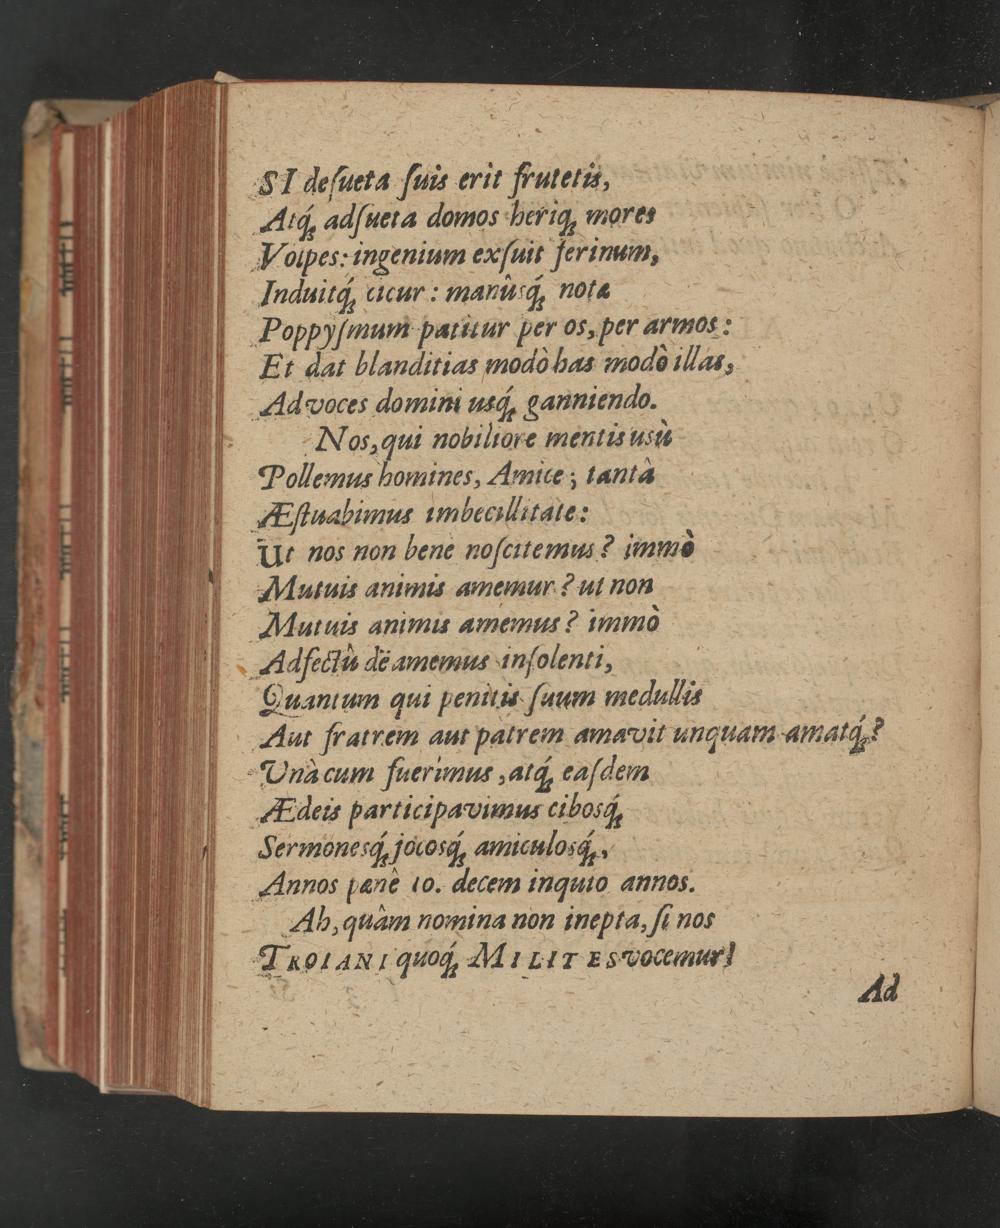 SI deſueta ſuis erit frutetis,
Atq́; adſueta domos heriq; mores
Volpes: ingenium exſuit ferinum,
Induitq́; cicur: manûsq́; notæ
Poppyſmum patitur per os, per armos:
Et dat blanditias modò has modò illas,
Ad voces domini usq́; ganniendo.
Nos, qui nobiliore mentis usù
Pollemus homines, Amice; tantâ
Æſtuabimus imbecillitate:
Ut nos non bene noſcitemus? immò
Mutuis animis amemur? ut non
Mutuis animis amemus? immò
Adfectû dëamemus inſolenti,
Quantum qui penitis ſuum medullis
Aut fratrem aut patrem amavit unquam amatq́;?
Unà cum fuerimus, atq́; eaſdem
Ædeis participavimus cibosq́;
Sermonesq́; jocosq́; amiculosq́;,
Annos pænè 10. decem inquio annos.
Ah, quâm nomina non inepta, ſi nos
TROIANI quoq́; MILITES vocemur!
Ad